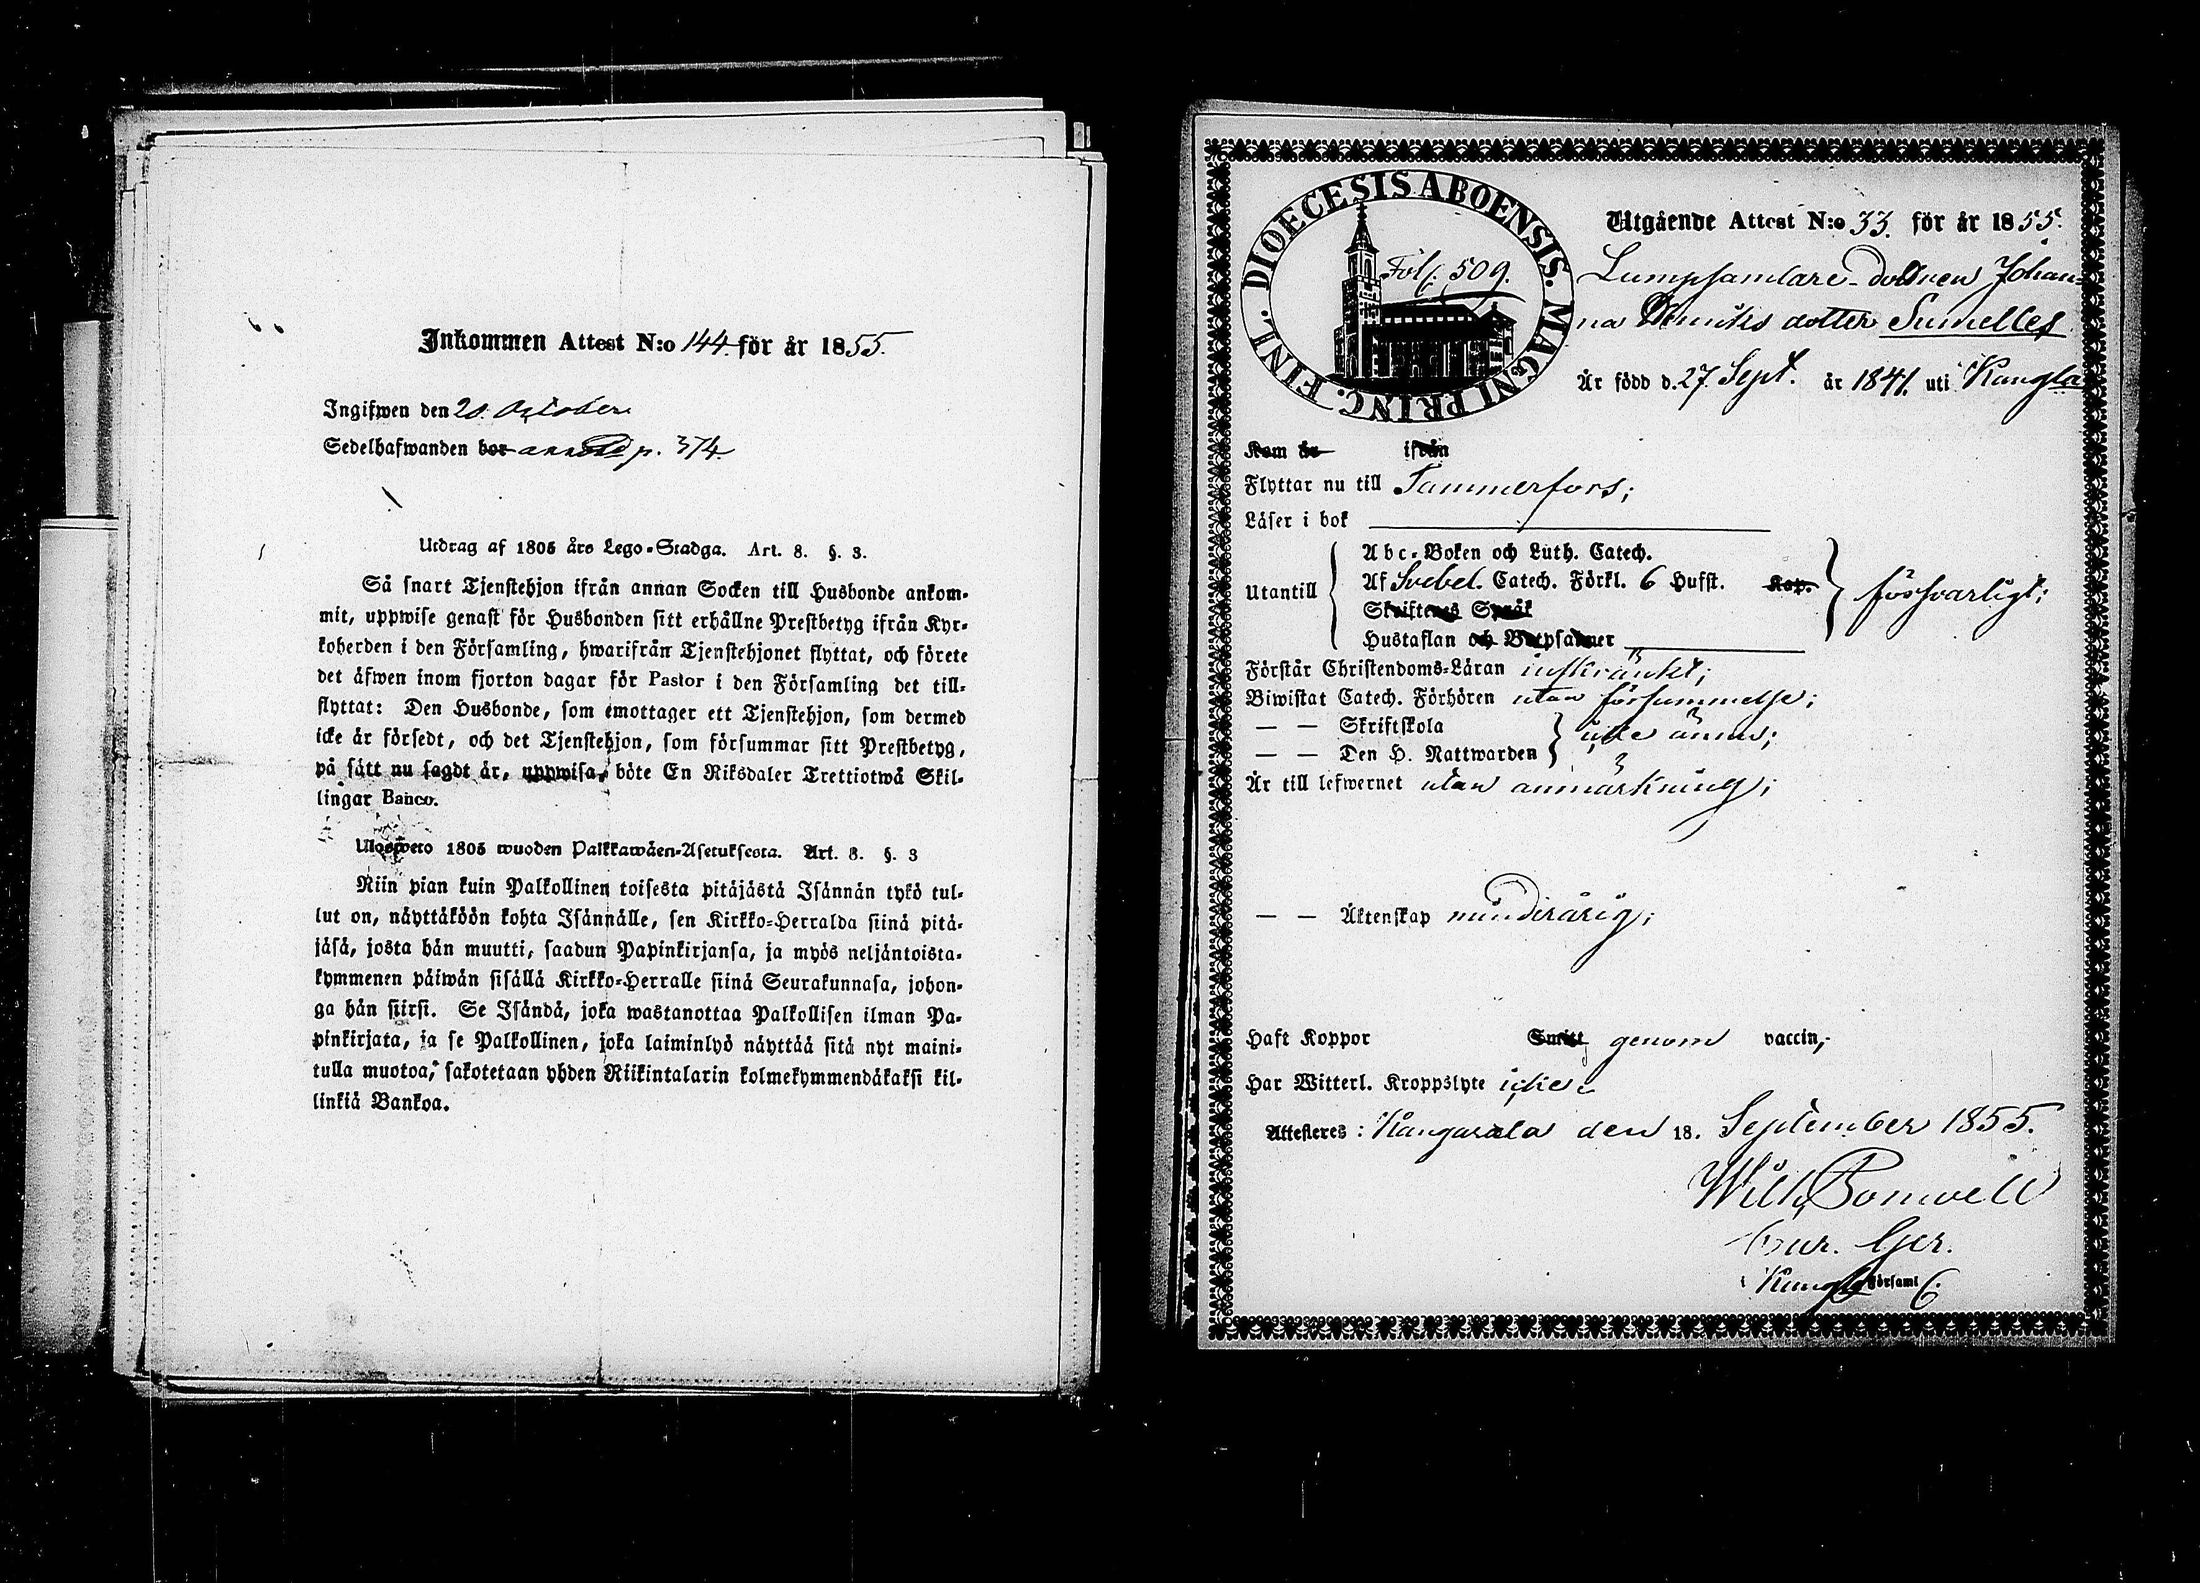 Inkommen Attest N:o 144. för år 1855.
Ingifwen den 20. October
Sedelhafwanden bor p. 374.
Utdrag af 1805 års Lego-Stadga. Art. 8. §. 3.
Så snart Tjenstehjon ifrån annan Socken till Husbonde ankom-
mit, uppwise genast för Husbonden sitt erhållne Prestbetyg ifrån Kyr-
koherden i den Församling, hwarifrån Tjenstehjonet flyttat, och förete
det äfwen inom fjorton dagar för Pastor i den Församling det till-
flyttat: Den Husbonde, som emottager ett Tjenstehjon, som dermed
icke är försedt, och det Tjenstehjon, som försummar sitt Prestbetyg,
på sätt nu sagdt är, uppwisa, böte En Riksdaler Trettiotwå Skil-
lingar Banco.
Ulosweto 1805 wuoden Palkkawäen-Asetuksesta. Art. 8. §. 3
Niin pian kuin Palkollinen toisesta pitäjästä Isännän tykö tul-
lut on, näyttäköön kohta Isännälle, sen Kirkko-Herralda siinä pitä-
jäsä, josta hän muutti, saadun Papinkirjansa, ja myös neljäntoista-
kymmenen päiwän sisällä Kirkko-Herralle siinä Seurakunnasa, johon-
ga hän siirsi. Se Isändä, joka wastanottaa Palkollisen ilman Pa-
pinkirjata, ja se Palkollinen, joka laiminlyö näyttää sitä nyt maini-
tulla muotoa, sakotetaan yhden Riikintalarin kolmekymmendäkaksi kil-
linkiä Bankoa.
DIOECESIS ABOENSIS. MAGNI PRINC. FINL.
Fol. 509.
Utgående Attest N:o 33. för år 1855.
Lumpsamlare-dottren Johan-
na dotter Sumelles
Är född d. 27. Sept. år 1841. uti Kangla
Kom år ifrån
Flyttar nu till Tammerfors;
Läser i bok
Utantill
Abc-Boken och Luth. Catech.
Af Svebel. Catech. Förkl. 6 Hufst. Kap.
Skriftenes Språk
Hustaflan och Botpsalmer
försvarligt;
Förstår Christendoms-Läran inskränkt;
Biwistat Catech. Förhören utan försummelse;
— — Skriftskola
— — Den H. Nattwarden
icke ännu;
Är till lefwernet utan anmärkning;
— — Äktenskap minderårig;
Haft Koppor Smitt genom vaccin,
Har Witterl. Kroppslyte icke;
Attesteres: Kangasala den 18. September 1855.
Wilh. Bonwell
Cur. Ger.
i Kangla Församl.